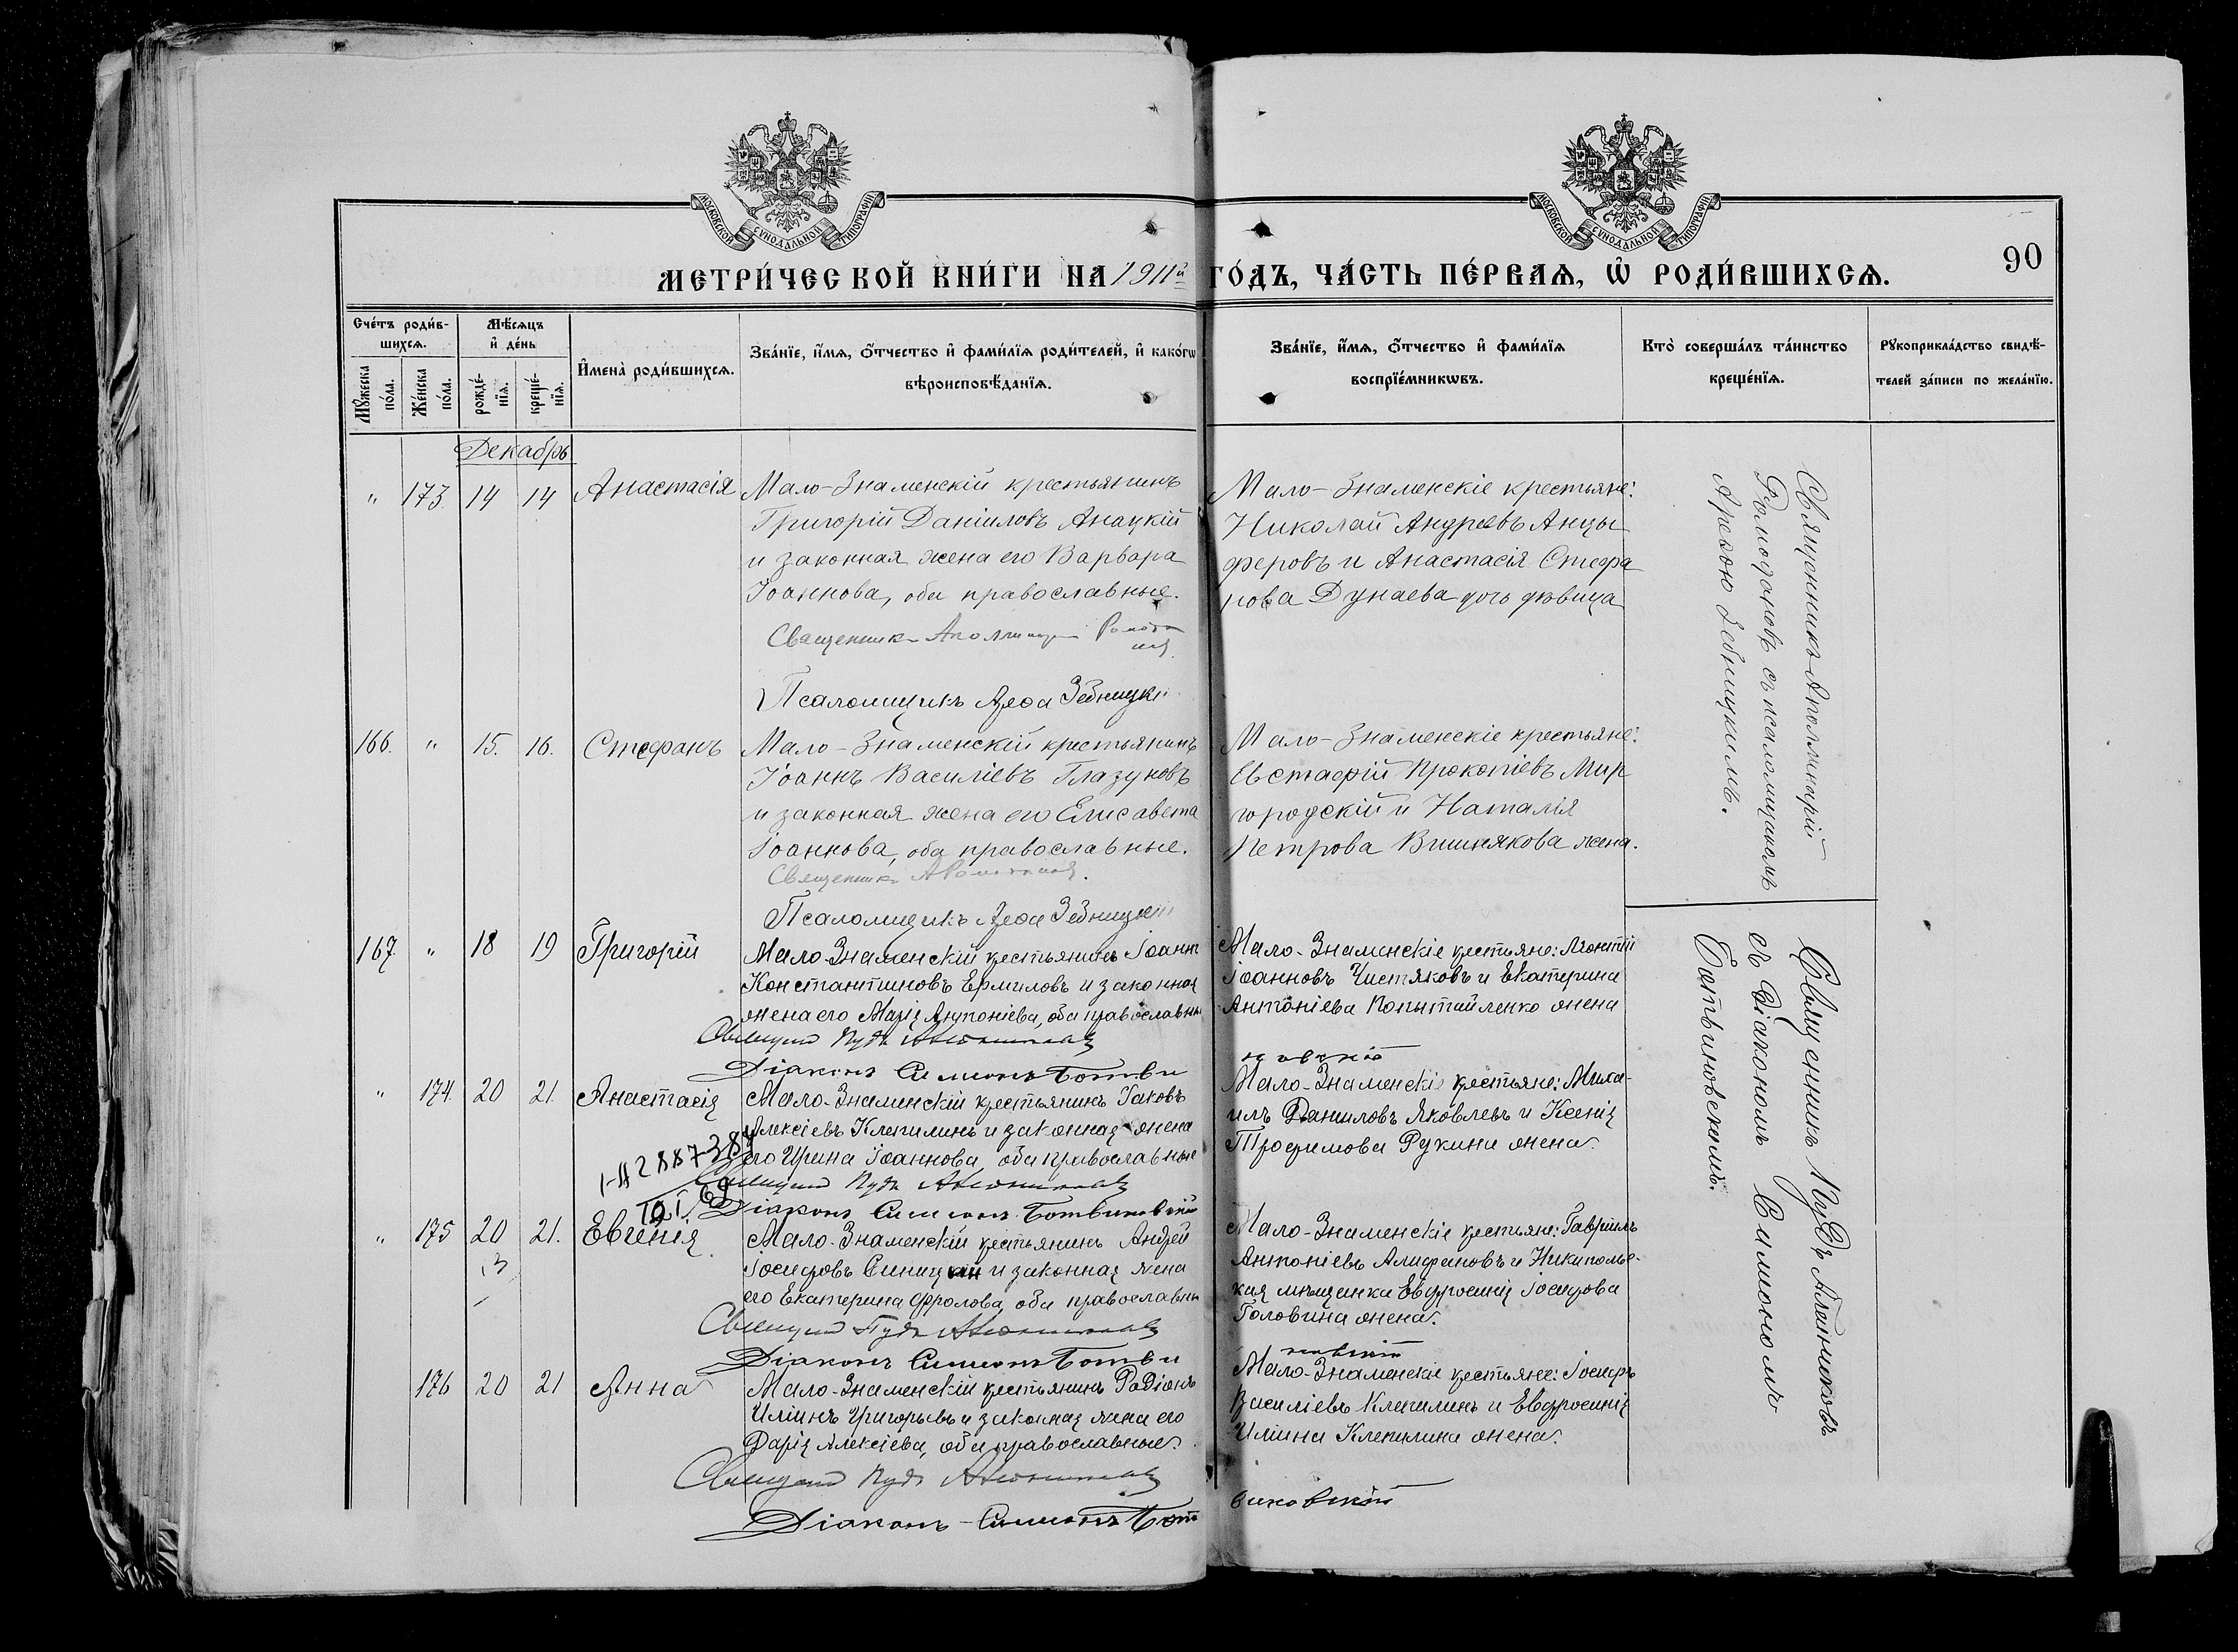 МОСКОВСКОЙ СѴНОДАЛЬНОЙ ТИПОГРАФІИ
МОСКОВСКОЙ СѴНОДАЛЬНОЙ ТИПОГРАФІИ
90
МЕТРИ́ЧЕСКОЙ КНИ́ГИ НА 1911й ГО́ДЪ, ЧА́СТЬ ПЕ́РВАѦ, Ѡ҆ РОДИ́ВШИХСѦ.
Сче́тъ роди́в-
шихсѧ.
Мѣ́сѧцъ
и҆ де́нь
Мꙋ́жеска по́ла.
Же́нска по́ла.
рожде́-нїѧ.
креще́-нїѧ.
И҆мена̀ роди́вшихсѧ.
Зва́нїе, и҆́мѧ, ѻ҆́тчество и҆ фами́лїѧ роди́телей, и҆ како́гѡ
вѣроисповѣ́данїѧ.
Зва́нїе, и҆́мѧ, ѻ҆́тчество и҆ фами́лїѧ
воспрїе́мникѡвъ.
Кто̀ соверша́лъ та́инство
креще́нїѧ.
Рꙋкоприкла́дство свидѣ́-
телей за́писи по жела́нїю.
Декабрь
" 173 14 14 Анастасія
Мало-Знаменскій крестьянинъ
Григорій Даніиловъ Анацкій
и законная жена его Варвара
Іоаннова, оба православные.
Священникъ Аполлинарій
Псаломщикъ Арефа Зебницкій
Мало-Знаменскіе крестьяне:
Николай Андреевъ Анцы
феровъ и Анастасія Стефа
нова Дунаева дочь девица
Священникъ Аполлинарій
Ромодановъ съ псаломщикомъ
Арефою Зебницкимъ.
166. " 15. 16. Стефанъ
Мало-Знаменскій крестьянинъ
Іоаннъ Василіевъ Глазуновъ
и законная жена его Елисавета
Іоаннова, оба православные.
Священникъ
Псаломщикъ Арефа Зебницкій
Мало-Знаменскіе крестьяне:
Евстафій Прокопіевъ Мир
городскій и Наталія
Петрова Вишнякова жена.
167 " 18 19 Григорій
Мало-Знаменскій крестьянинъ Іоаннъ
Константиновъ Ермиловъ и законная
жена его Марія Антоніева, оба православны
Священникъ Пудъ
Діаконъ Симеонъ Ботви
Мало-Знаменскіе крестьяне: Леонтій
Іоанновъ Чистяковъ и Екатерина
Антоніева Копытайленко жена
новскій
Священникъ Пудъ
съ Діакономъ Симеономъ
Ботвиновскимъ.
" 174. 20 21. Анастасія
Мало-Знаменскій крестьянинъ Іаковъ
Алексіевъ Клепилинъ и законная жена
его Ирина Іоаннова, оба православные
Священникъ Пудъ
Діаконъ Симеонъ Ботвиновскій
Мало-Знаменскіе крестьяне: Миха-
илъ Даниловъ Яковлевъ и Ксенія
Трофимова Рукина жена.
" 175 20 21. Евгенія
Мало-Знаменскій крестьянинъ Андрей
Іосифовъ Синицкій и законная жена
его Екатерина Фролова, оба православны
Священникъ Пудъ
Діаконъ Симеонъ Ботви
Мало-Знаменскіе крестьяне: Гавріилъ
Антоніевъ Алифановъ и Никополь-
кая мѣщанка Евфросинія Іосифова
Головина жена.
новскій
176 20 21 Анна
Мало-Знаменскій крестьянинъ Родіонъ
Иліинъ Григорьевъ и законная жена его
Дарія Алексіева, оба православные.
Священникъ Пудъ
Діаконъ Симеонъ Бот
Мало-Знаменскіе крестьяне: Іосифъ
Василіевъ Клепилинъ и Евфросинія
Иліина Клепилина жена.
виновскій